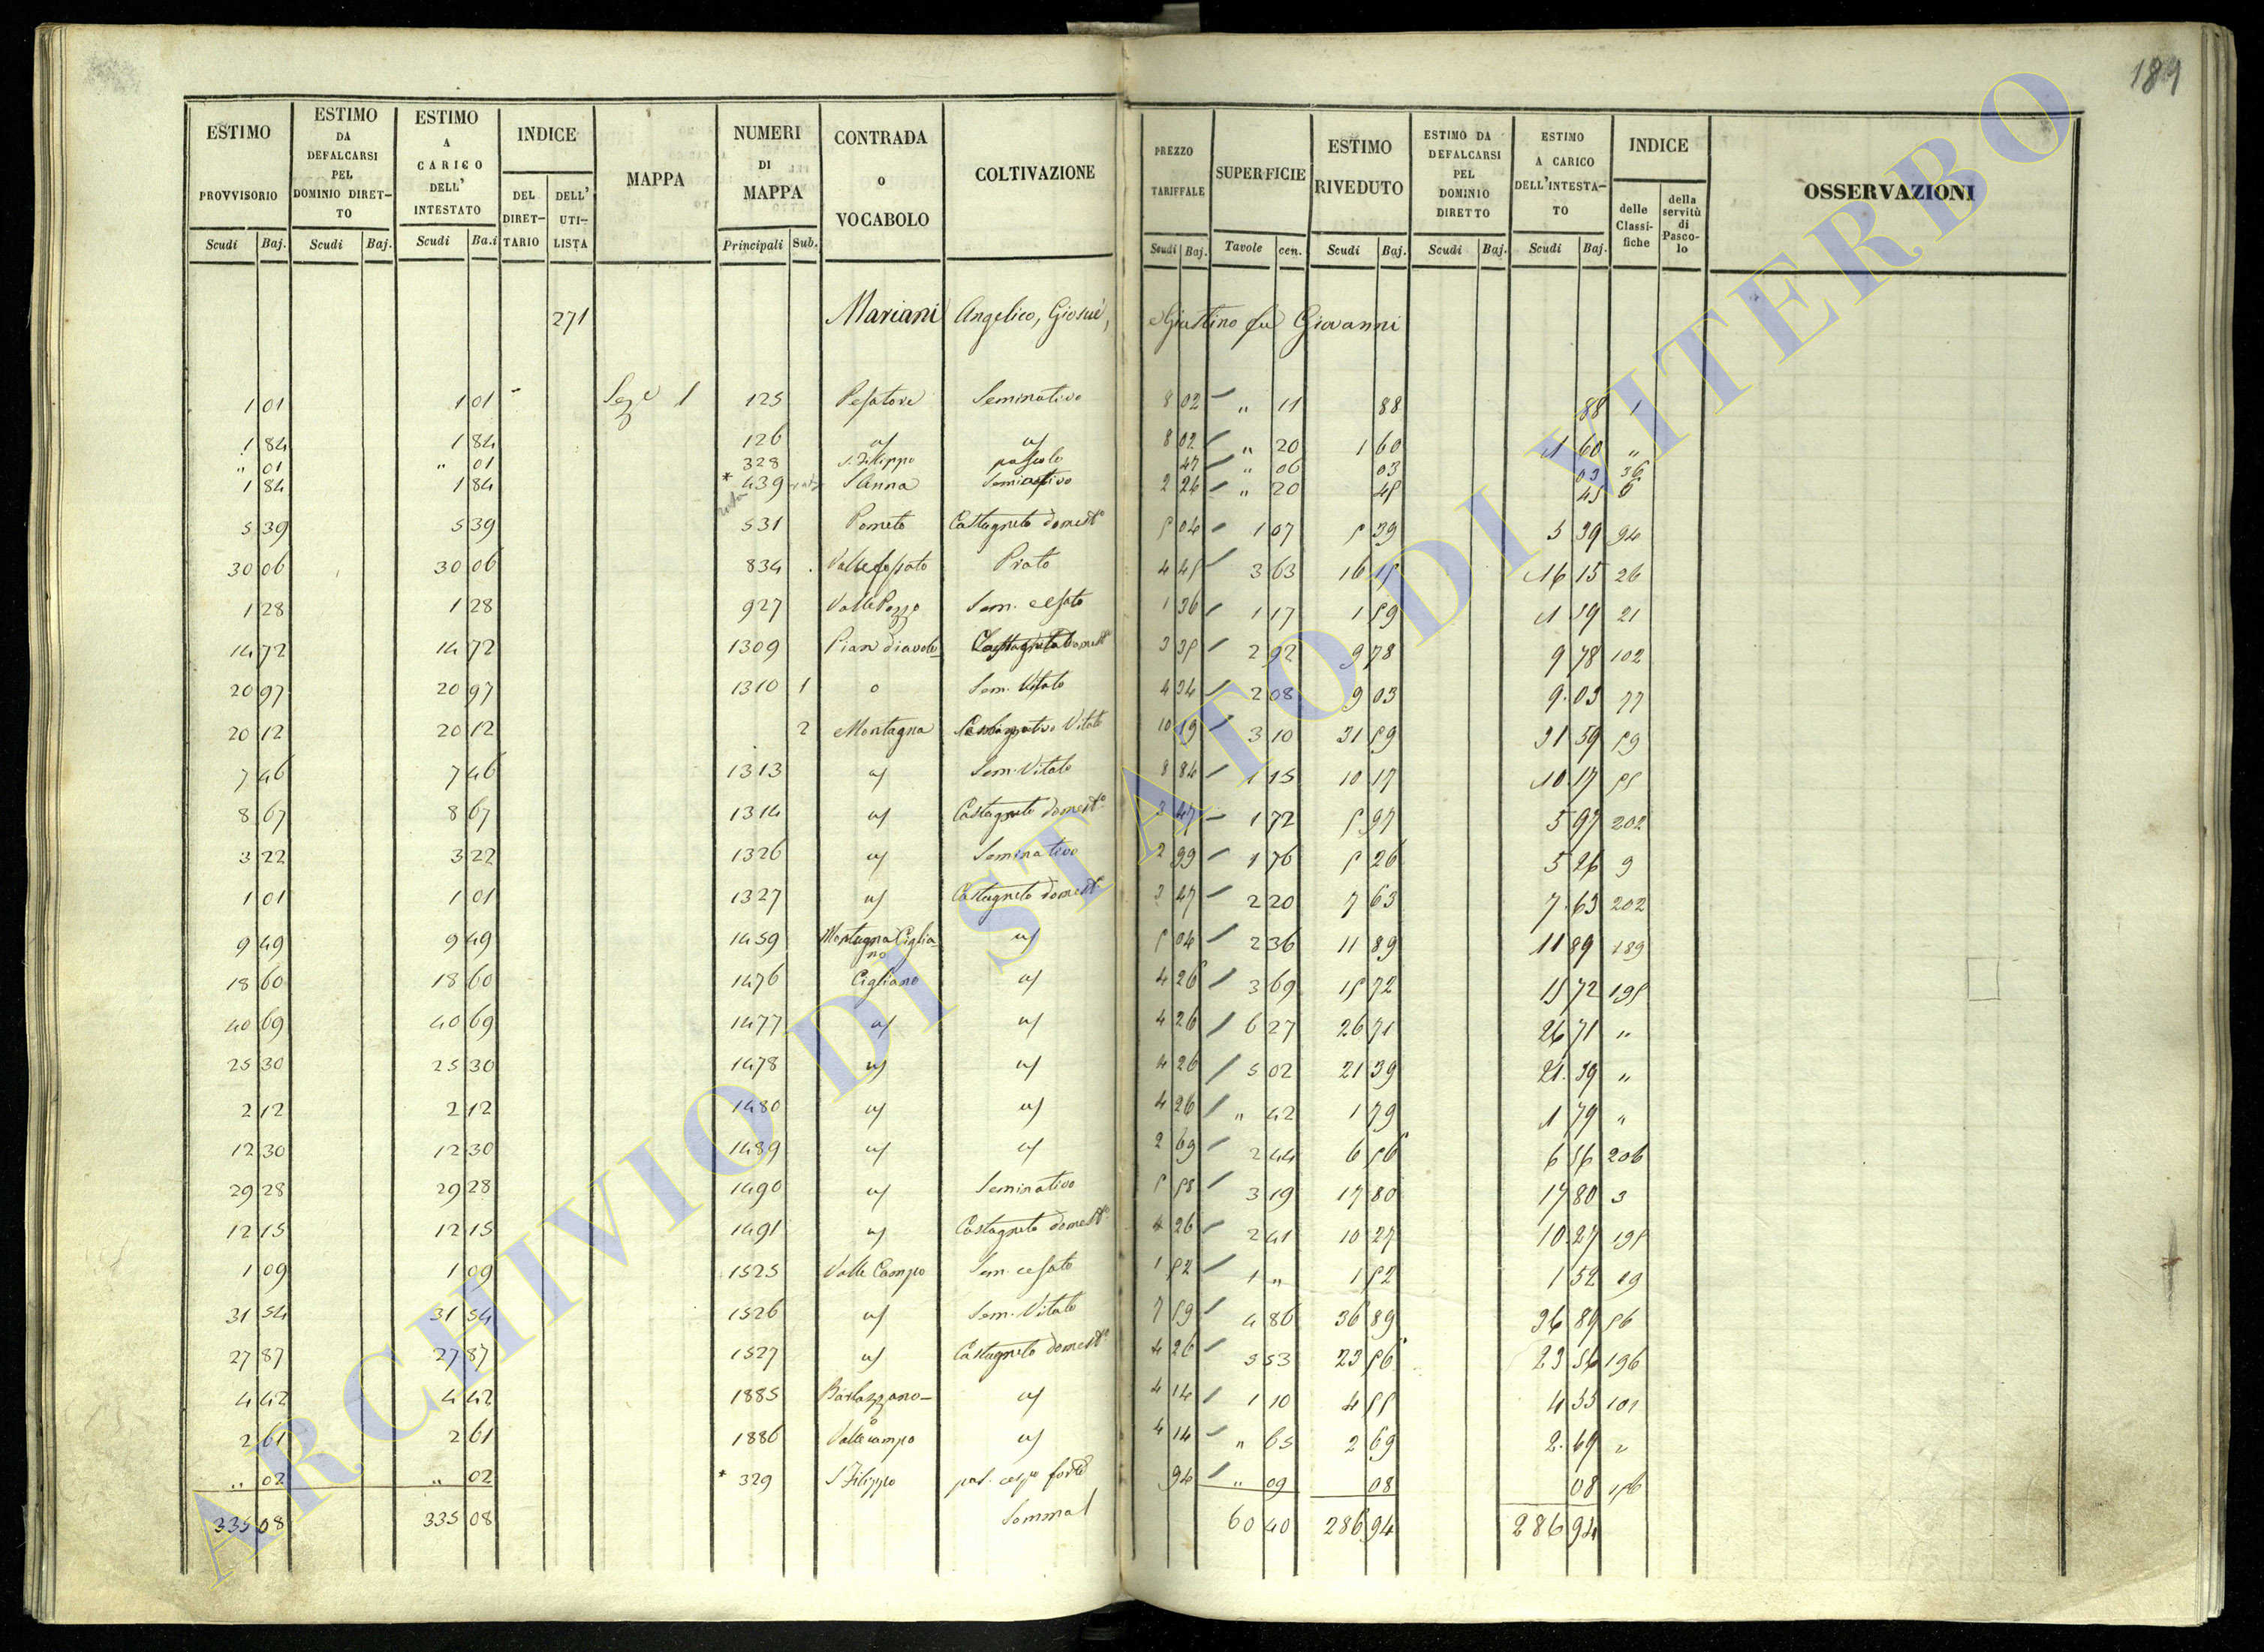 189
ESTIMO PROVVISORIO Scudi Baj. | ESTIMO DA DEFALCARSI PEL DOMINIO DIRETTO Scudi Baj. | ESTIMO A CARICO DELL' INTESTATO Scudi Ba.i | INDICE DEL DIRETTARIO DELL' UTILISTA | MAPPA | NUMERI DI MAPPA Principali Sub. | CONTRADA O VOCABOLO | COLTIVAZIONE | PREZZO TARIFFALE Scudi Baj. | SUPERFICIE Tavole cen. | ESTIMO RIVEDUTO Scudi Baj. | ESTIMO DA DEFALCARSI PEL DOMINIO DIRETTO Scudi Baj. | ESTIMO A CARICO DELL'INTESTATO Scudi Baj. | INDICE delle Classifiche della servitù di Pascolo | OSSERVAZIONI
271 Mariani Angelico, Giosuè, e Giustino fu Giovanni
1 01 1 01 Seze 1 125 Pesatore Seminativo 8 02 " 11 88 88 1
1 84 1 84 126 a/ a/ 8 02 " 20 1 60 1 60 "
" 01 " 01 328 S. Filippo pascolo 47 " 06 03 03 36
1 84 1 84 * 439 S Anna Seminativo 2 24 " 20 45 45 6
5 39 5 39 531 Pometo Castagneto domest.o 5 04 1 07 5 39 5 39 94
30 06 30 06 834 Valle fossato Prato 4 45 3 63 16 15 16 15 26
1 28 1 28 927 Valle Pozzo Sem. cesato 1 36 1 17 1 59 1 59 21
14 72 14 72 1309 Pian diavolo Castagneto domest.o 3 35 2 92 9 78 9 78 102
20 97 20 97 1310 1 o Sem. Vitato 4 34 2 08 9 03 9.03 77
20 12 20 12 2 Montagna Seminativo Vitato 10 19 3 10 31 59 31 59 59
7 46 7 46 1313 a/ Sem. Vitato 8 84 1 15 10 17 10 17 55
8 67 8 67 1314 a/ Castagneto domest.o 3 47 1 72 5 97 5 97 202
3 22 3 22 1326 a/ Seminativo 2 99 1 76 5 26 5 26 9
1 01 1 01 1327 a/ Castagneto domest.o 3 47 2 20 7 63 7.63 202
9 49 9 49 1459 Montagna Cigliano a/ 5 04 2 36 11 89 11 89 189
18 60 18 60 1476 Cigliano a/ 4 26 3 69 15 72 15 72 195
40 69 40 69 1477 a/ a/ 4 26 6 27 26 71 26 71 "
25 30 25 30 1478 a/ a/ 4 26 5 02 21 39 21.39 "
2 12 2 12 1480 a/ a/ 4 26 " 42 1 79 1 79 "
12 30 12 30 1489 a/ a/ 2 69 2 44 6 56 6 56 206
29 28 29 28 1490 a/ Seminativo 5 58 3 19 17 80 17 80 3
12 15 12 15 1491 a/ Castagneto domest.o 4 26 2 41 10 27 10.27 195
1 09 1 09 1525 Valle Campo Sem. cesato 1 52 1 " 1 52 1 52 19
31 54 31 54 1526 a/ Sem. Vitato 7 59 4 86 36 89 36 89 56
27 87 27 87 1527 a/ Castagneto domest.o 4 26 5 53 23 56 23 56 196
4 42 4 42 1885 Barlazzano a/ 4 14 1 10 4 55 4 55 101
2 61 2 61 1886 Valle campo a/ 4 14 " 65 2 69 2.69 "
" 02 " 02 * 329 S Filippo pas. cesp. forte 94 " 09 08 08
335 08 335 08 Somma 60 40 286 94 286 94
ARCHIVIO DI STATO DI VITERBO